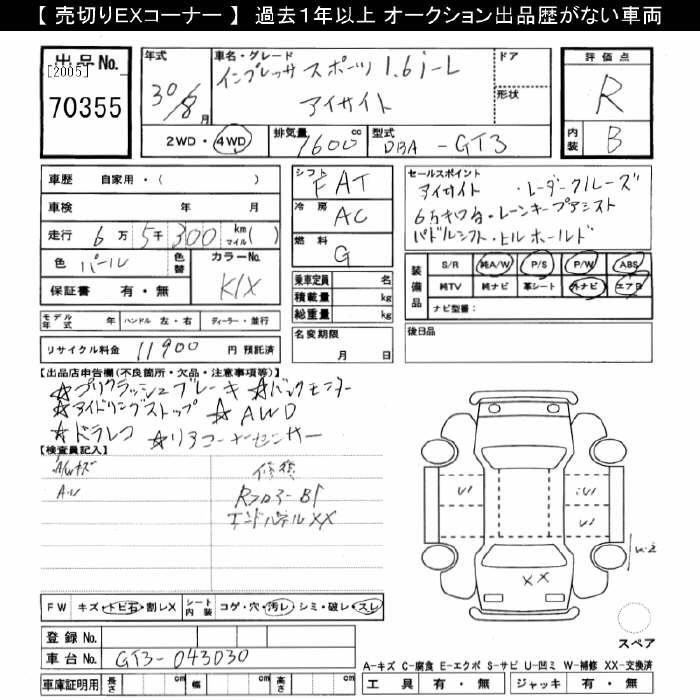 【 売切りEXコーナー 】 過去１年以上 オークション出品歴がない車両
出品No.
[2005]
70355
年式
30/8月
車名・グレード
インプレッサ スポーツ 1.6i-L
アイサイト
ドア
形状
評価点
R
内装 B
2WD・4WD
排気量
1600 cc
型式
DBA - GT3
車歴 自家用・( )
車検 年 月
走行 6万5千300 km マイル( )
色 パール 色替 カラーNo. K1X
保証書 有・無
シフト FAT
冷房 AC
燃料 G
乗車定員 名
積載量 kg
総重量 kg
セールスポイント
アイサイト ・レーダークルーズ
6万キロ台・レーンキープアシスト
パドルシフト・ヒルホールド
装備品
S/R 純A/W P/S P/W ABS
純TV 純ナビ 革シート 外ナビ エアB
ナビ型番:
モデル年式 年 ハンドル 左・右 ディーラー・並行
リサイクル料金 11900 円 預託済
名変期限
月 日
後日品
【出品店申告欄(不良箇所・欠品・注意事項等)】
☆プリクラッシュブレーキ ☆バックモニター
☆アイドリングストップ ☆AWD
☆ドラレコ ☆リアコーナーセンサー
【検査員記入】
A/Wキズ
A・U
修積
Rフロアー BT
エンドパネル XX
FW キズ・トビ石・割レX シート内装 コゲ・穴・汚レ・シミ・破レ・スレ
登録 No.
車台 No. GT3-043030
車庫証明用 長さ cm 幅 cm 高さ cm
XX
スペア
A-キズ C-腐食 E-エクボ S-サビ U-凹ミ W-補修 XX-交換済
工具 有・無 ジャッキ 有・無